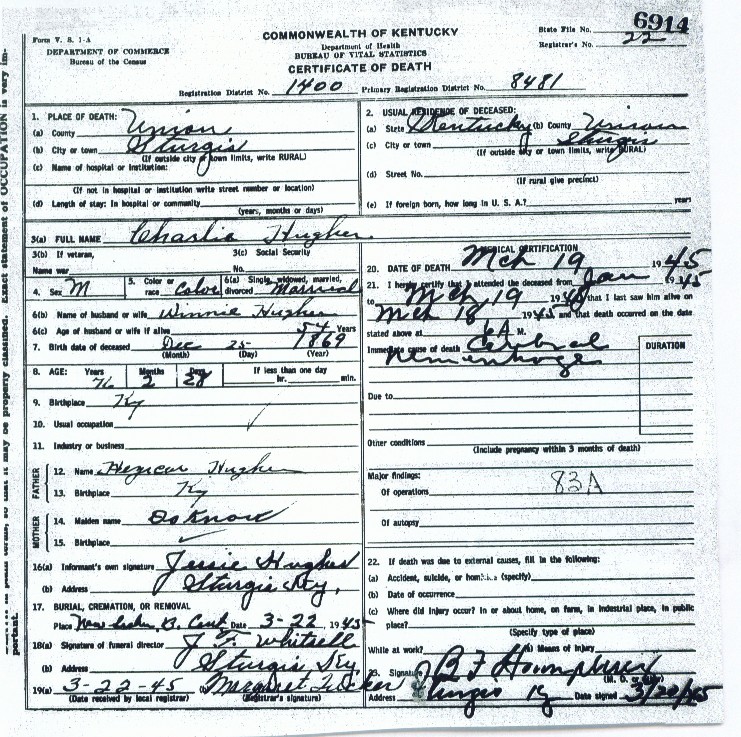 6914
Form V. S. 1-A
DEPARTMENT OF COMMERCE
Bureau of the Census
COMMONWEALTH OF KENTUCKY
Department of Health
BUREAU OF VITAL STATISTICS
CERTIFICATE OF DEATH
State File No.
Registrar's No. 22
Registration District No. 1400 Primary Registration District No. 8481
1. PLACE OF DEATH:
(a) County Union
(b) City or town Sturgis
(If outside city or town limits, write RURAL)
(c) Name of hospital or institution:
(If not in hospital or institution write street number or location)
(d) Length of stay: In hospital or community
(years, months or days)
2. USUAL RESIDENCE OF DECEASED:
(a) State Kentucky (b) County Union
(c) City or town Sturgis
(If outside city or town limits, write RURAL)
(d) Street No.
(If rural give precinct)
(e) If foreign born, how long in U. S. A.? years
3(a) FULL NAME Charlie Hughes
3(b) If veteran, 3(c) Social Security
Name war No.
4. Sex M 5. Color or race Color 6(a) Single, widowed, married, divorced Married
6(b) Name of husband or wife Winnie Hughes
6(c) Age of husband or wife if alive 54 Years
7. Birth date of deceased Dec 25- 1869
(Month) (Day) (Year)
8. AGE: Years Months Days If less than one day
76 2 28 hr. min.
9. Birthplace Ky
10. Usual occupation
11. Industry or business
FATHER
12. Name Hughes
13. Birthplace Ky
MOTHER
14. Maiden name Do Know
15. Birthplace
16(a) Informant's own signature Jessie Hughes
(b) Address Sturgis Ky,
17. BURIAL, CREMATION, OR REMOVAL
Place B. Cem Date 3-22 1945
18(a) Signature of funeral director J. F. Whitsell
(b) Address Sturgis Ky
19(a) 3-22-45 (b) Margaret Tucker
(Date received by local registrar) (Registrar's signature)
MEDICAL CERTIFICATION
20. DATE OF DEATH Mch 19 1945
21. I hereby certify that I attended the deceased from Jan 1945
to Mch 19 1945 that I last saw him alive on
Mch 18 1945 and that death occurred on the date
stated above at 6 A M.
Immediate cause of death Cerebral
Hemorrhage
DURATION
Due to
Other conditions
(Include pregnancy within 3 months of death)
Major findings:
Of operations 83A
Of autopsy
22. If death was due to external causes, fill in the following:
(a) Accident, suicide, or homicide (specify)
(b) Date of occurrence
(c) Where did injury occur? In or about home, on farm, in industrial place, in public
place?
(Specify type of place)
While at work? (e) Means of Injury
23. Signature B F Humphrey
(M. D. or other)
Address Sturgis Ky Date signed 3/20/45
portant.